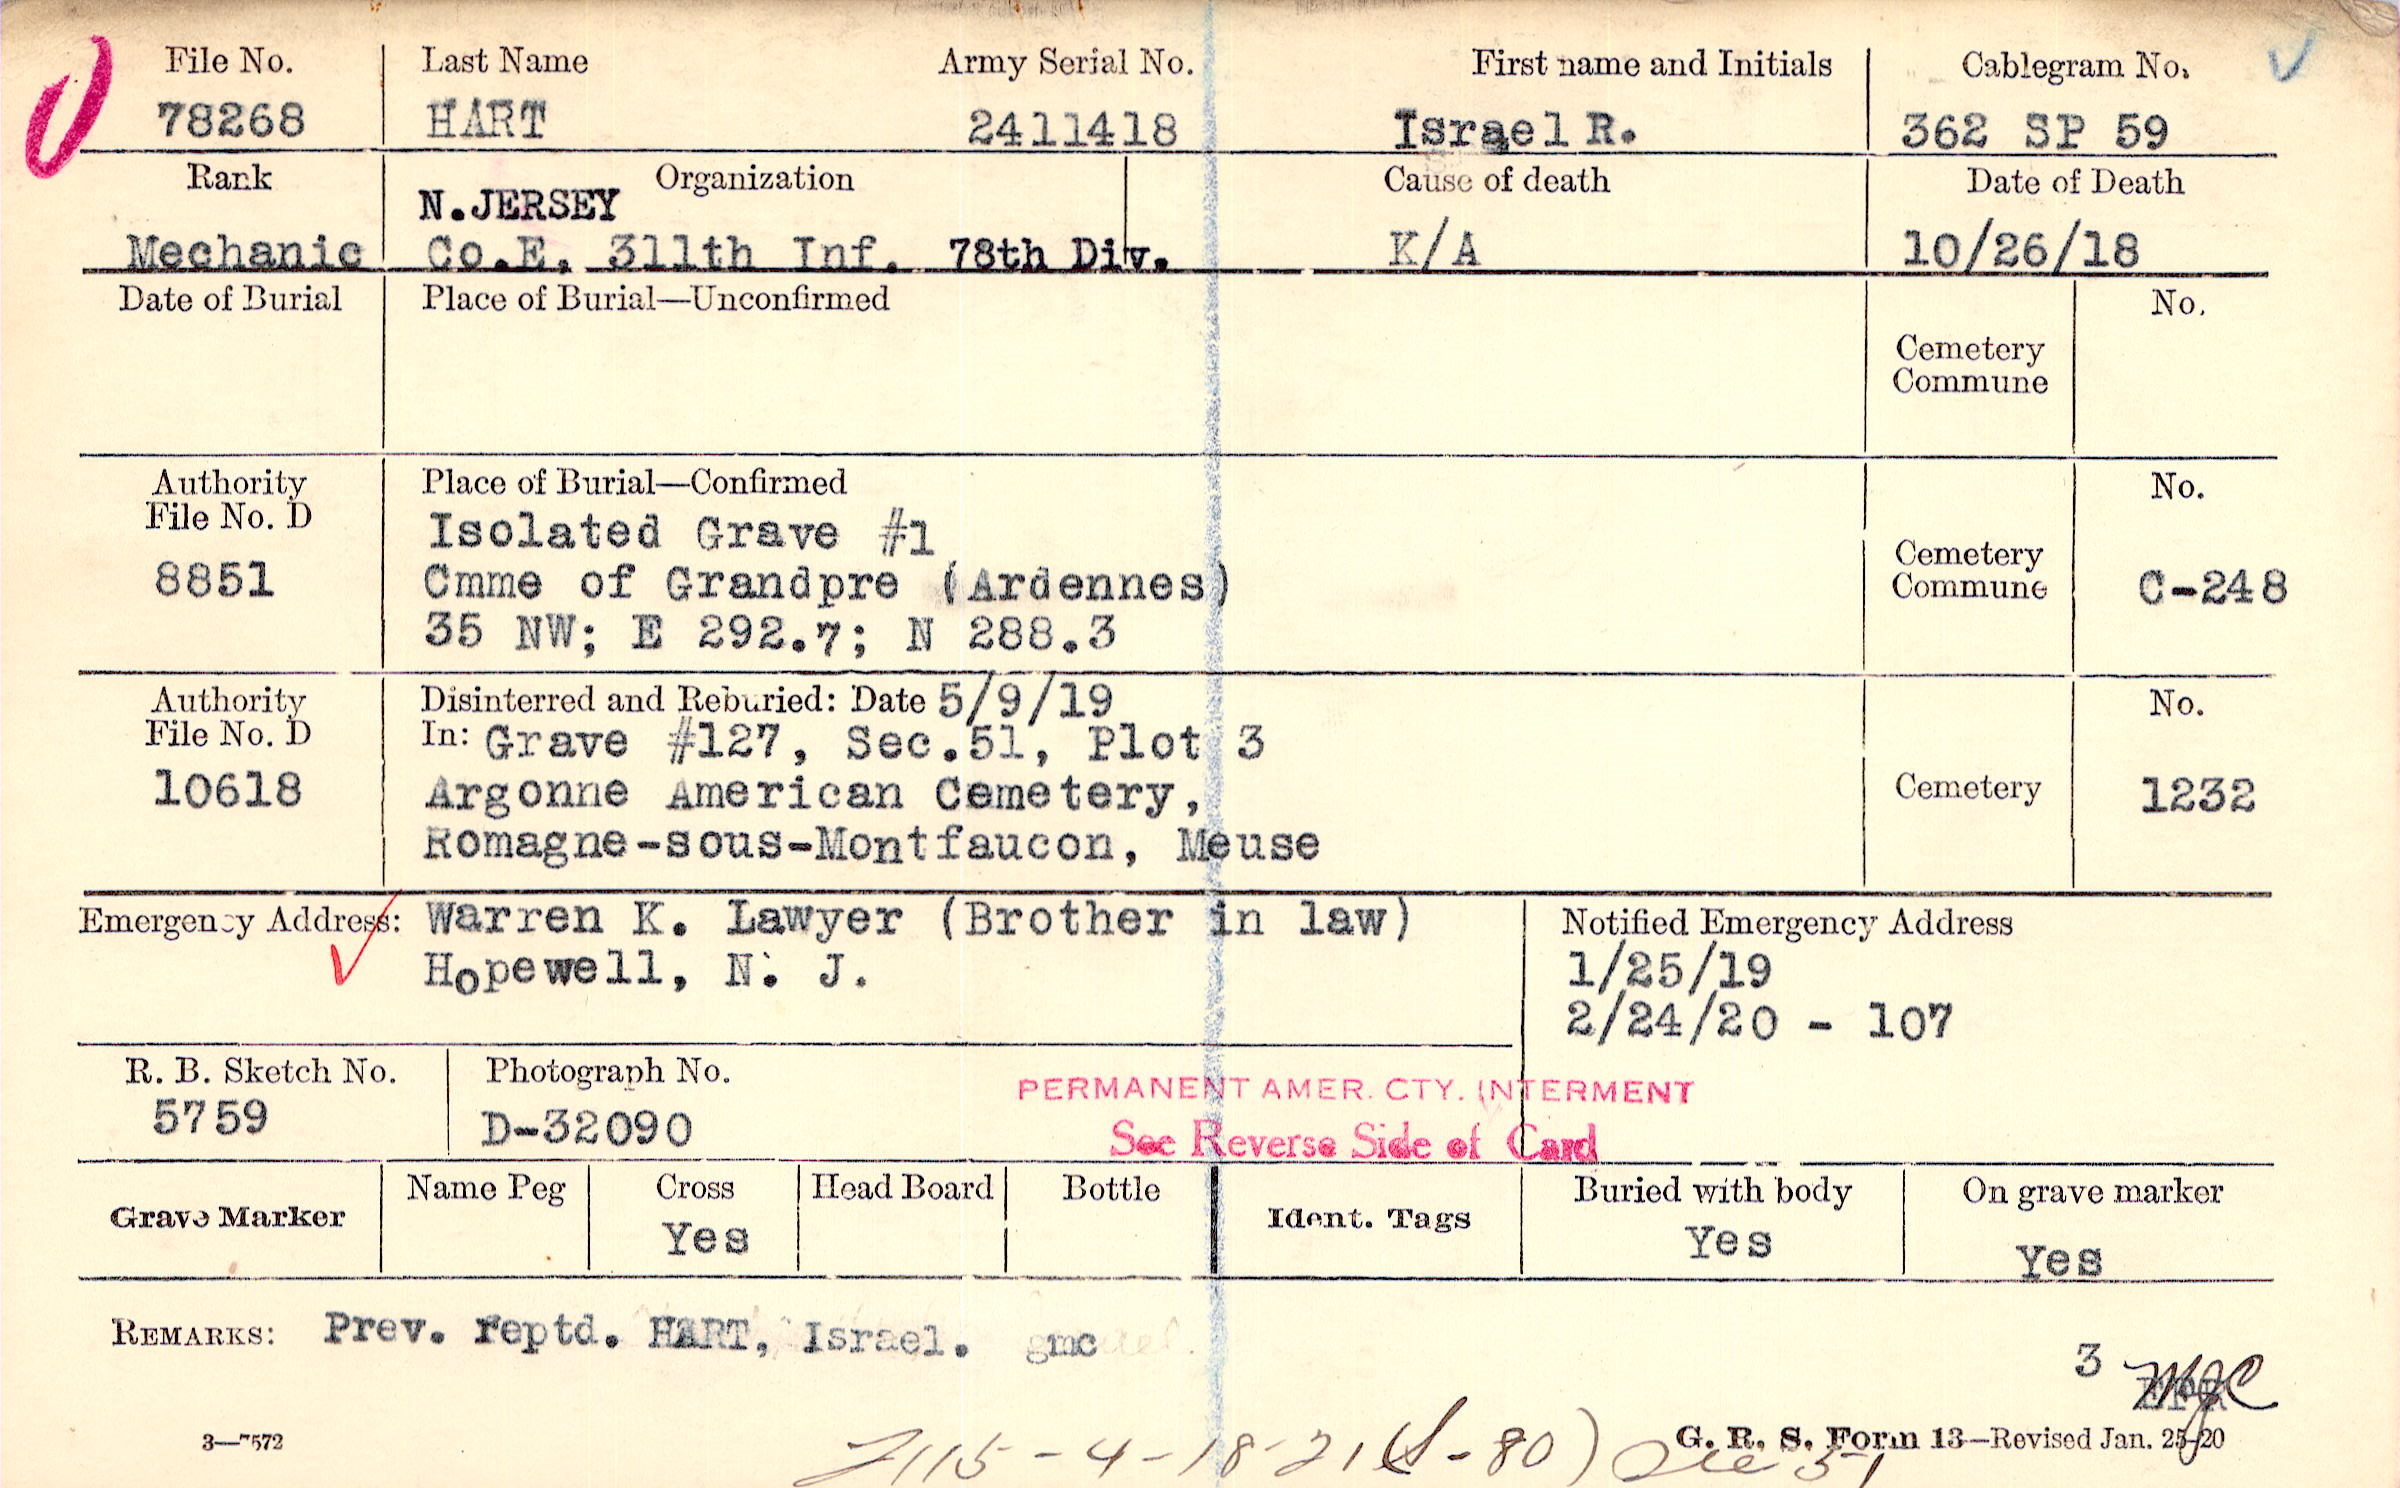 File No. Last Name Army Serial No. First name and Initials Cablegram No.
78268 HART 2411418 Israel R. 362 SP 59
Rank Organization Cause of death Date of Death
N.JERSEY
Mechanic Co.E, 311th Inf. 78th Div. K/A 10/26/18
Date of Burial Place of Burial—Unconfirmed No.
Cemetery
Commune
Authority Place of Burial—Confirmed No.
File No. D Isolated Grave #1
8851 Cmme of Grandpre (Ardennes) Cemetery
Commune C-248
35 NW; E 292.7; N 288.3
Authority Disinterred and Reburied: Date 5/9/19 No.
File No. D In: Grave #127, Sec.51, Plot 3
10618 Argonne American Cemetery, Cemetery 1232
Romagne-sous-Montfaucon, Meuse
Emergency Address: Warren K. Lawyer (Brother in law) Notified Emergency Address
Hopewell, N. J. 1/25/19
2/24/20 - 107
R. B. Sketch No. Photograph No.
5759 D-32090
PERMANENT AMER. CTY. INTERMENT
See Reverse Side of Card
Grave Marker Name Peg Cross Head Board Bottle Ident. Tags Buried with body On grave marker
Yes Yes Yes
REMARKS: Prev. reptd. HART, Israel. gmc
3 MJC
3—7572 G. R. S. Form 13—Revised Jan. 25-20